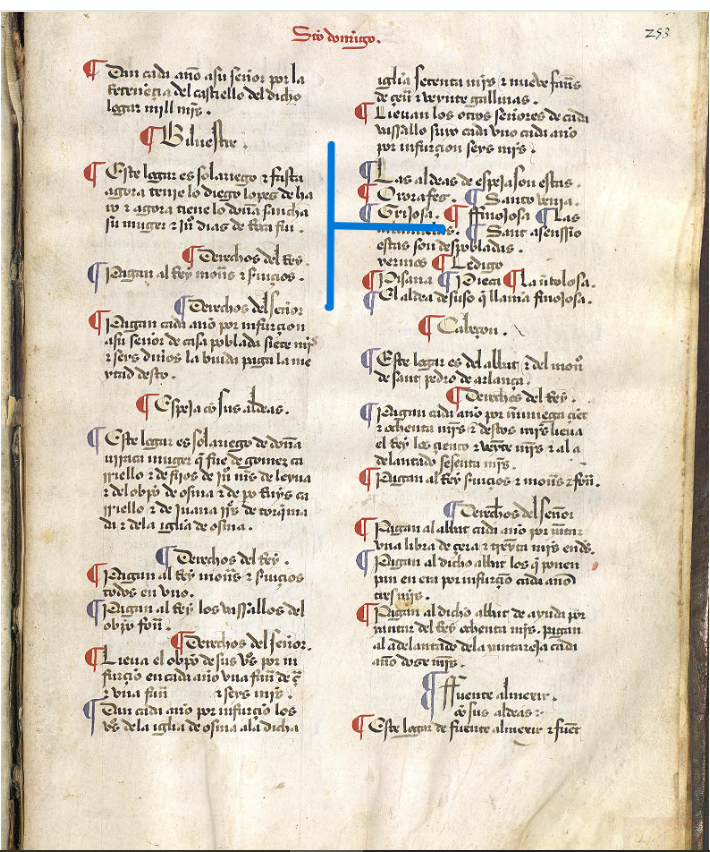 Sto domingo.
253
Dan cada año a su señor por la
tenencia del castiello del dicho
logar mill mrs.
Biluestre.
Este logar es solariego e fasta
agora tenie lo diego lopes de ha
ro e agora tiene lo doña sancha
su muger e ju dias de Roca full.
Derechos del Rey.
Pagan al Rey mon̄s e seruiçios.
Derechos del señor
Pagan cada año por infurçion
a su señor de casa poblada siete mrs
e seys dineros la biuda paga la me
ytad desto.
Espeja cō sus aldeas.
Este logar es solariego de doña
urraca muger q̄ fue de gomez ca
rriello e de fijos de ju mrs de leyua
e del obpo de osma e de po Ruys ca
rriello e de juana de torquema
da e de la iglia de osma.
Derechos del Rey.
Pagan al Rey mon̄s e seruiçios
todos en vno.
Pagan al Rey los vassallos del
obpo fon̄.
Derechos del señor.
Lieua el obpo de sus vs por in
furçio en cada año vna fan̄ de
e vna fan̄ e seys mrs.
Dan cada año por infurçio los
vs de la iglia de osma a la dicha
iglia setenta mrs e nueue fan̄s
de çeu e veynte gallinas.
Lieuan los otros señores de cada
vassallo suyo cada vno cada año
por infurçion seys mrs.
Las aldeas de espeja son estas.
Ororafes. Santeruenja.
Grijosa. ffinojosa Las
Sant asenssio
estas son despobladas.
yermos Ledigo
Pisana Pieci La
El aldea de suso q̄ llama finojosa.
Cabeçon.
Este logar es del abbat e del mon̄
de sant pedro de arlança.
Derechos del Rey.
Pagan cada año por martiniega çiēt
e ochenta mrs e destos mrs lieua
el Rey los çiento e veynte mrs e al a
delantado sesenta mrs.
Pagan al Rey seruiçios e mon̄s e fon̄.
Derechos del señor
Pagan al abbat cada año por
vna libra de çera e treynta mrs
Pagan al dicho abbat los q̄ ponen
pan en era por infurçio cada año
tres mrs.
Pagan al dicho abbat de ayuda por
yantar del Rey ochenta mrs. pagan
al adelantado de la yantareja cada
año dose mrs.
ffuente almexir.
cō sus aldeas
Este logar de fuente almexir e fuēt